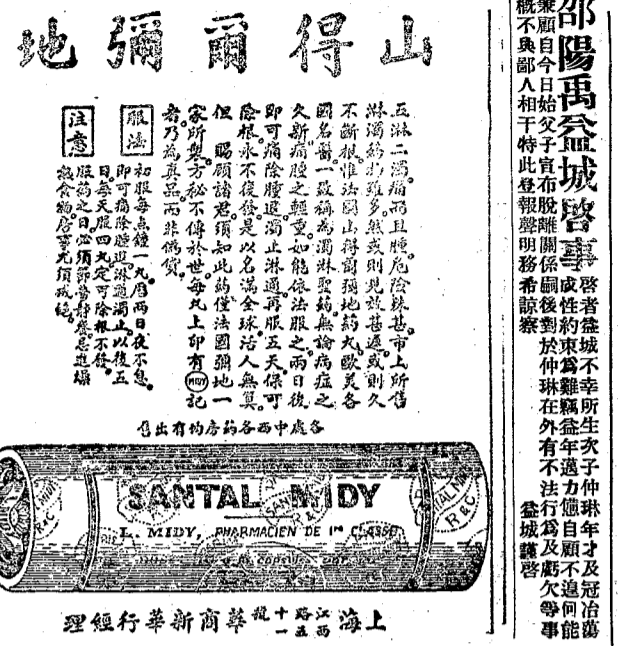 邵陽禹益城啓事
啓者益城不幸所生次子仲琳年才及冠冶蕩
成性約束為難竊益年邁力憊自顧不遑何能
兼顧自今日始父子宣布脫離關係嗣後對於仲琳在外有不法行為及虧欠等事
概不與鄙人相干特此登報聲明務希諒察 益城謹啓
山得爾彌地
五淋二濁痛而且腫危險殊甚市上所售
淋濁藥物雖多然或則見效甚遲或則久
不斷根惟法國山得爾彌地藥丸歐美各
國名醫一致稱為濁淋聖藥無論病症之
久新痛腫之輕重如能依法服之兩日後
即可痛除腫退濁止淋通再服五天保可
除根永不復發是以名滿全球活人無算
但 賜顧諸君須知此藥僅法國彌地一
家所製方祕不傳於世每丸上印有MIDY記
者乃為真品而非僞貨
服法
初服每点鐘一丸歷兩日夜不息
即可痛除腫退淋通濁止以後五
日每天服四九定可除根不發
注意
服药之日必須節勞靜養忌進燥
熱食物房事尤須戒絕
各處中西各药房均有出售
SANTAL MIDY
L. MIDY, PHARMACIEN DE 1re CLASSE
上海江西路五十一號華商新華行經理